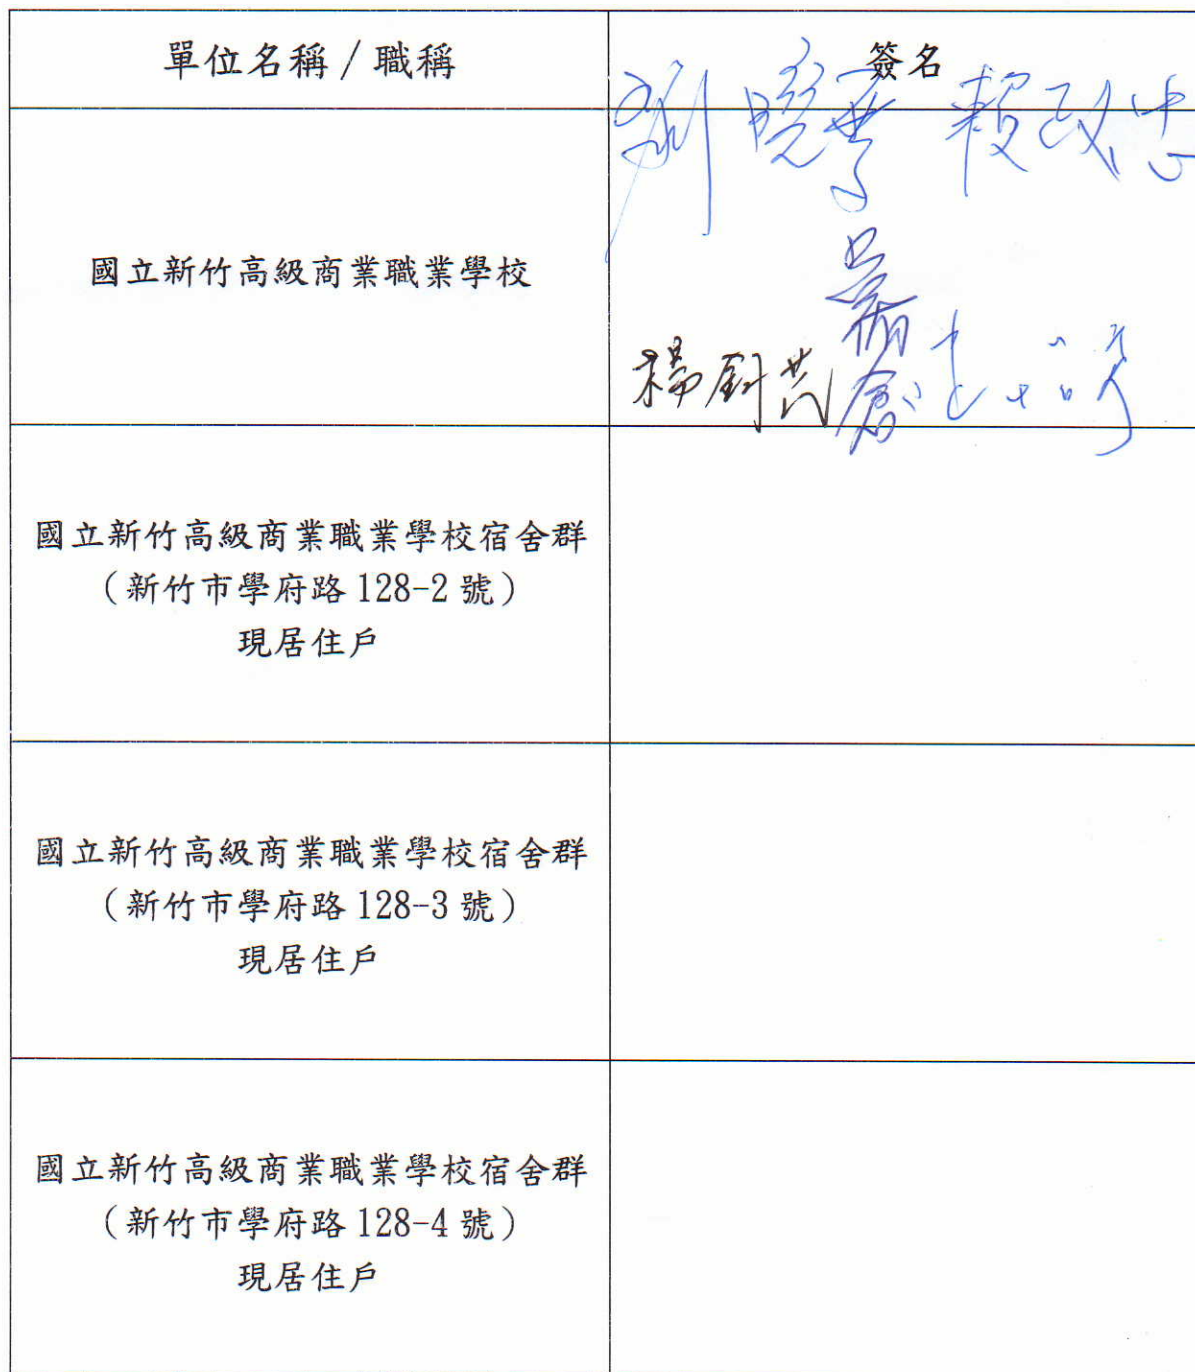 單位名稱 / 職稱
簽名
賴政忠
國立新竹高級商業職業學校
楊釗芸
國立新竹高級商業職業學校宿舍群
（新竹市學府路 128-2 號）
現居住戶
國立新竹高級商業職業學校宿舍群
（新竹市學府路 128-3 號）
現居住戶
國立新竹高級商業職業學校宿舍群
（新竹市學府路 128-4 號）
現居住戶